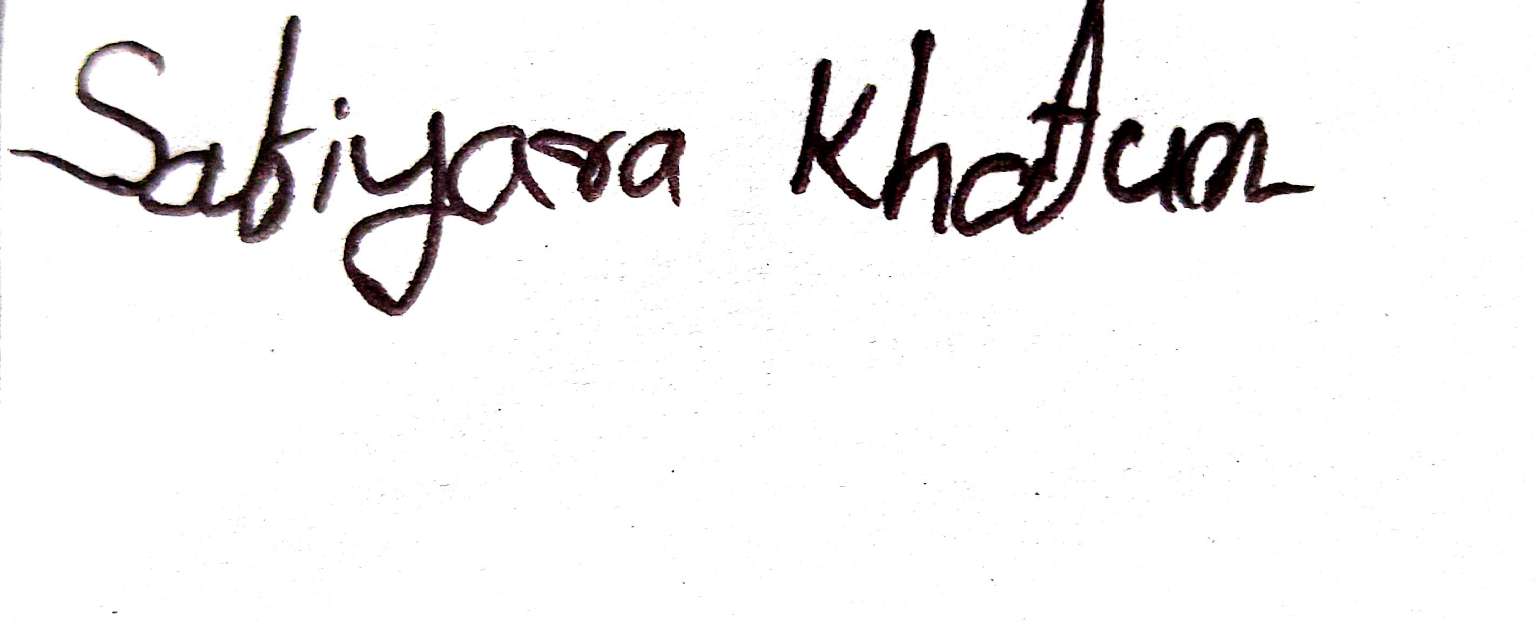 Safiyara Khatun